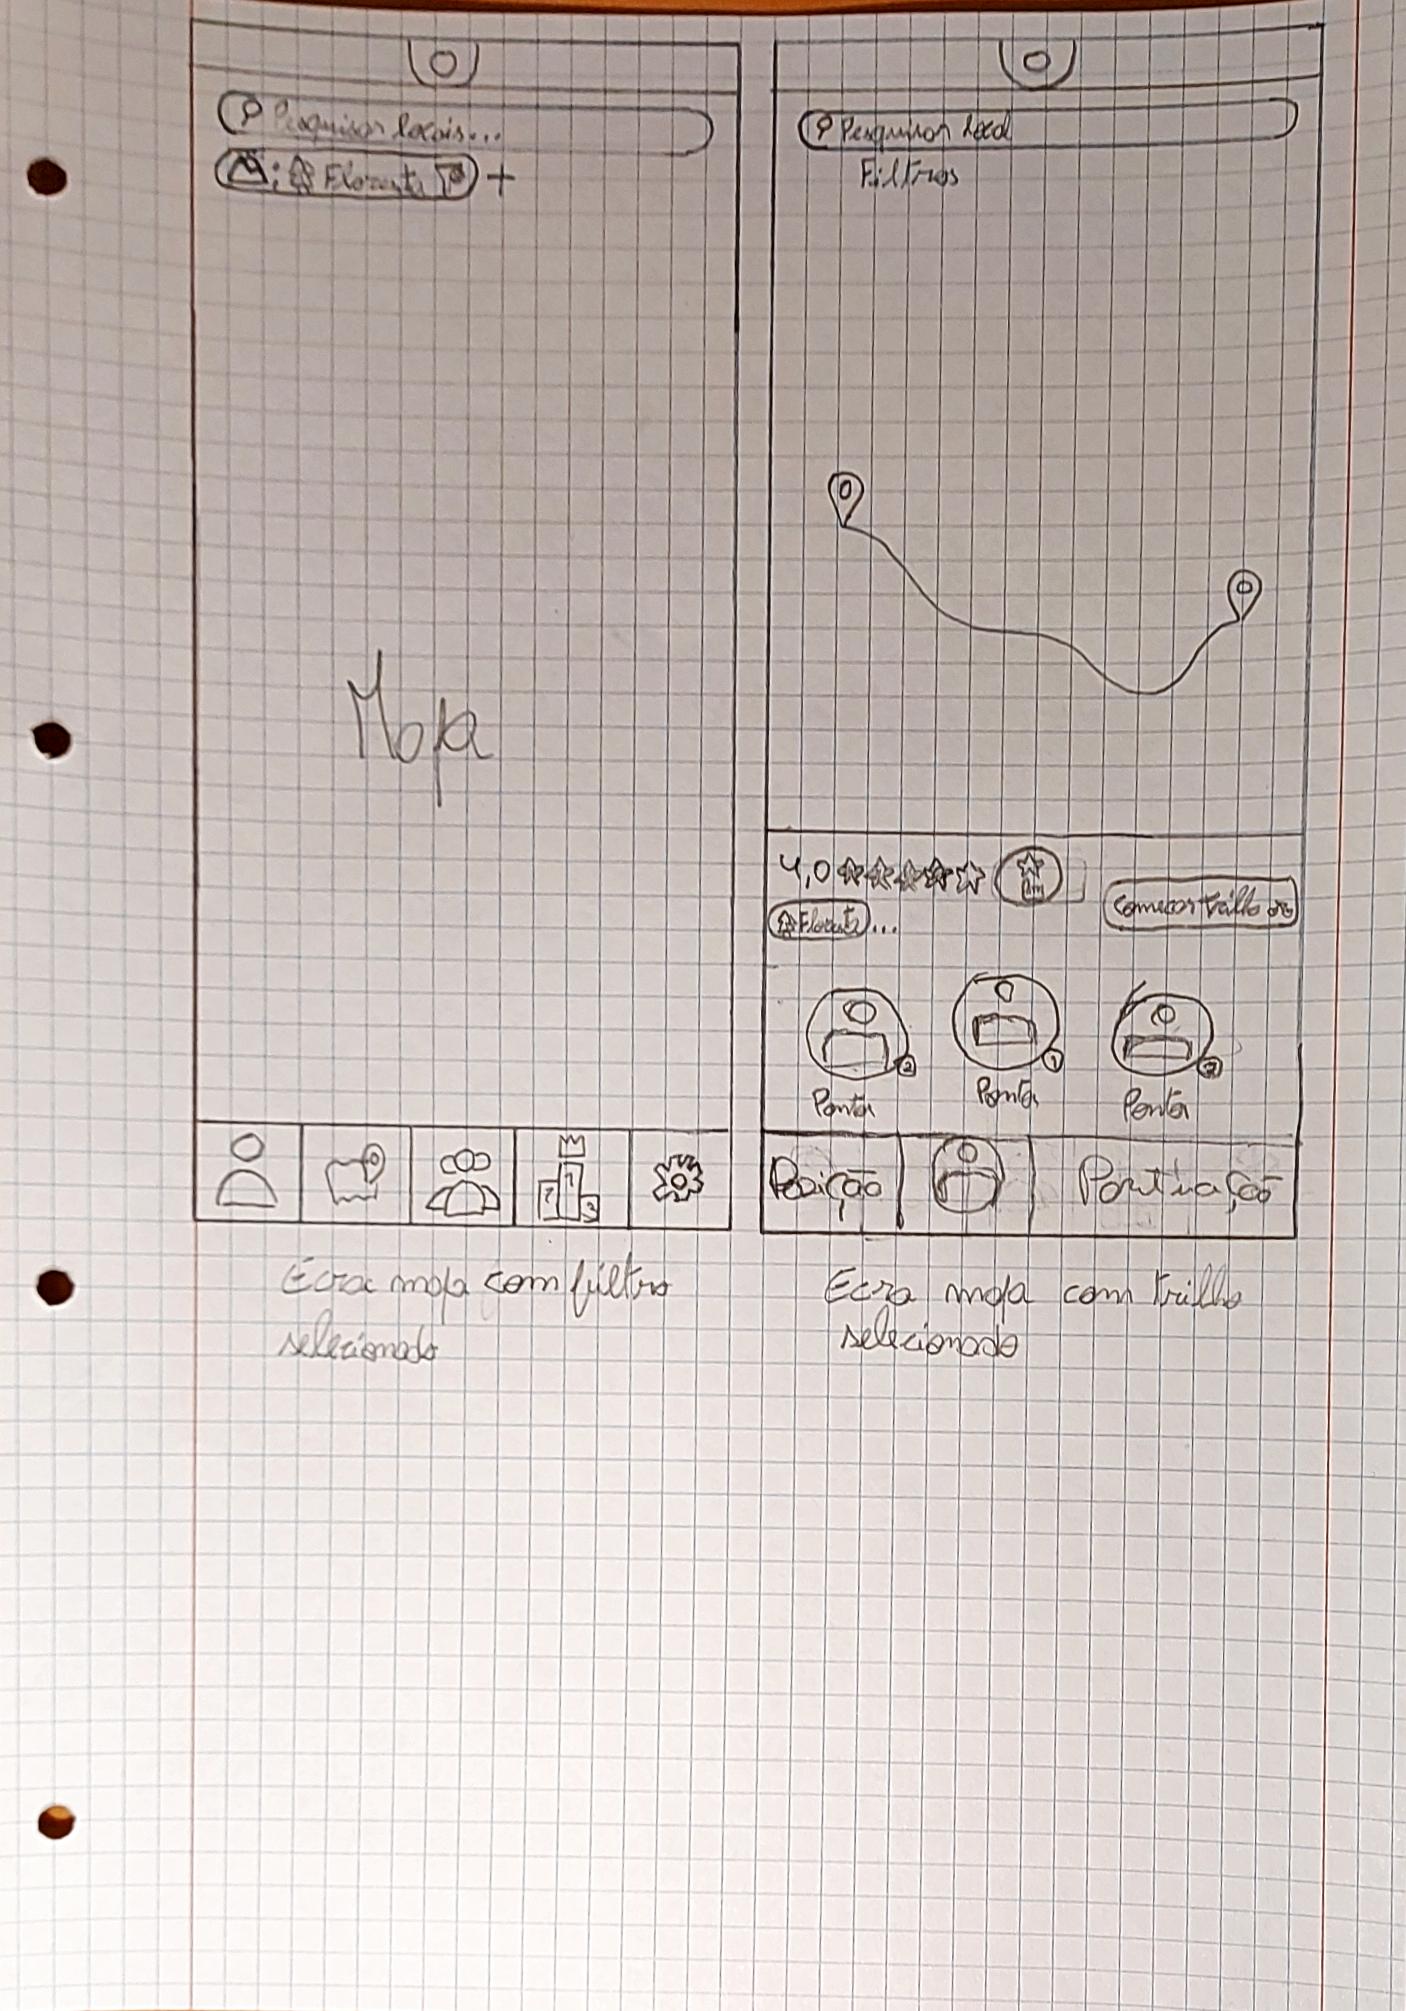 Pesquisar locais...
Floresta +
Mapa
2 1 3
Ecra mapa com filtro
selecionado
Pesquisar local
Filtros
4,0
Começar trilho
Floresta ...
2 1 3
Pontos Pontos Pontos
Posição Pontuação
Ecra mapa com trilho
selecionado